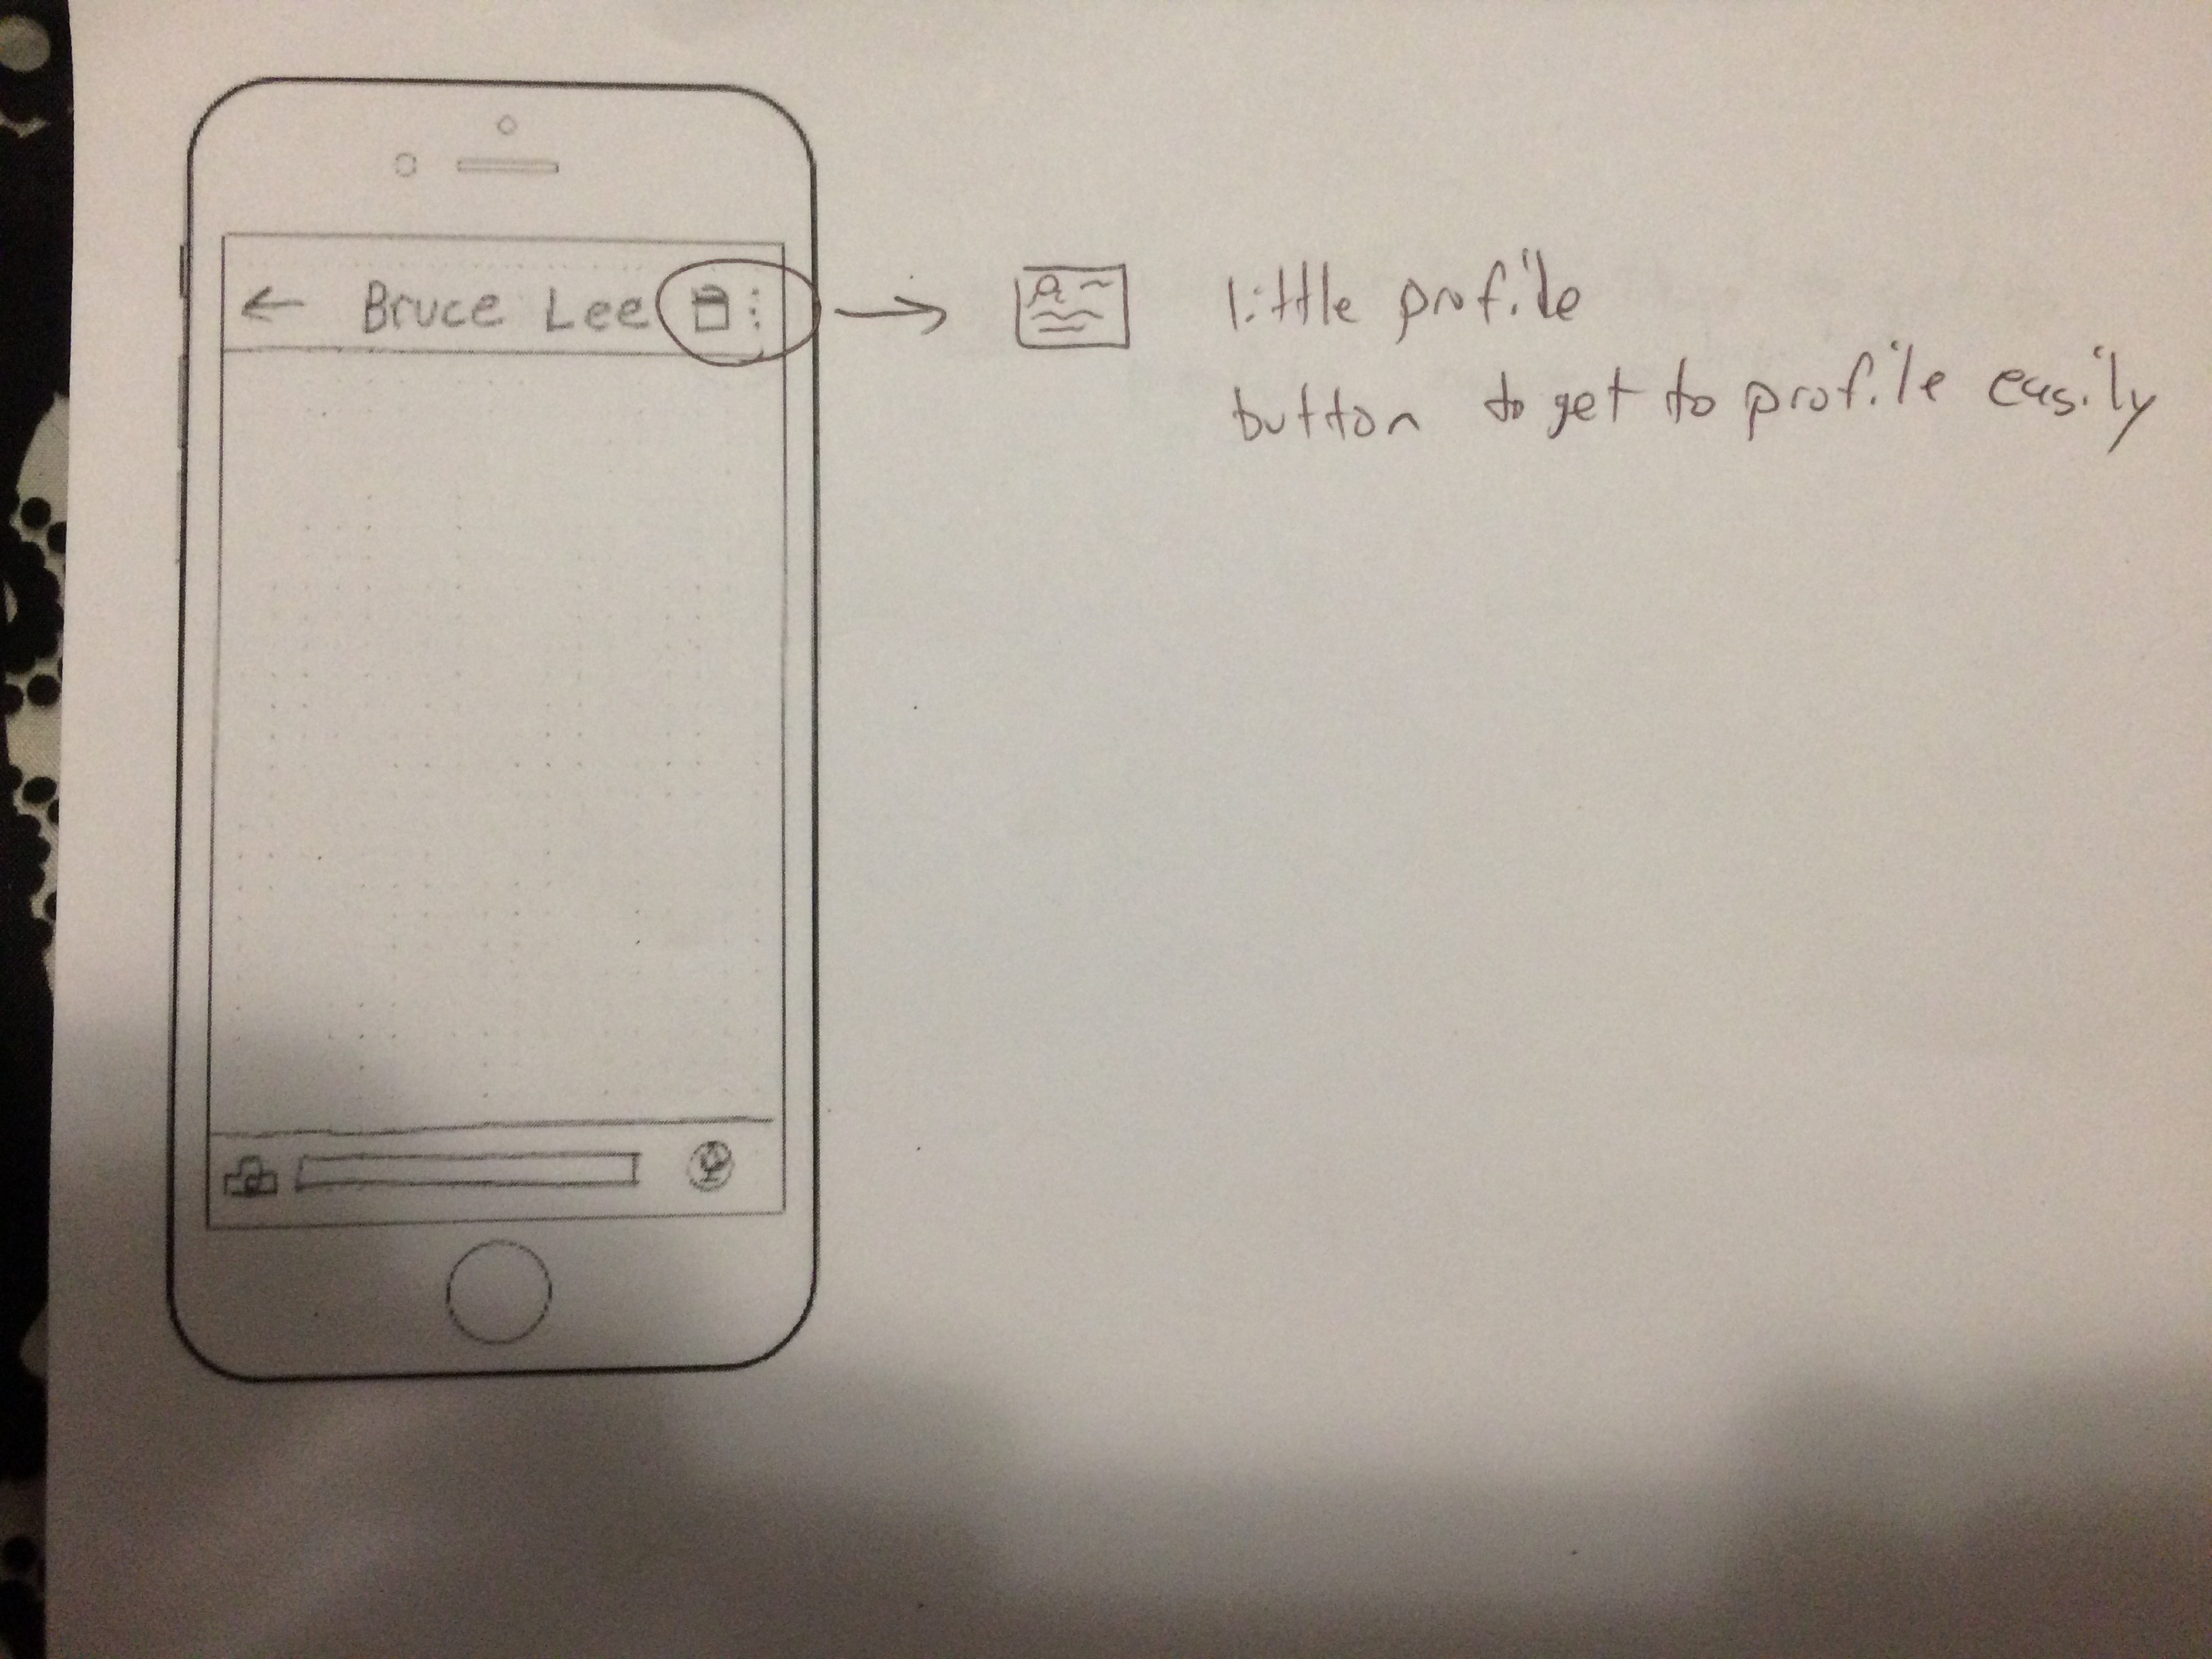 Bruce Lee
little profile
button to get to profile easily